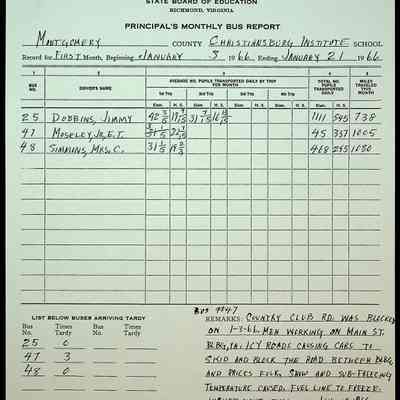 STATE BOARD OF EDUCATION
RICHMOND, VIRGINIA
PRINCIPAL'S MONTHLY BUS REPORT
MONTGOMERY COUNTY CHRISTIANSBURG INSTITUTE SCHOOL
Record for FIRST Month, Beginning JANUARY 3 1966, Ending JANUARY 21 1966
1 2 3 4 5
BUS NO. DRIVER'S NAME AVERAGE NO. PUPILS TRANSPORTED DAILY BY TRIP THIS MONTH TOTAL NO. PUPILS TRANSPORTED DAILY MILES TRAVELED THIS MONTH
1st Trip 2nd Trip 3rd Trip 4th Trip
Elem. H. S. Elem. H. S. Elem. H. S. Elem. H. S. Elem. H. S.
25 DOBBINS, JIMMY 1111 545 738
47 MOSELEY, JR. E. T. 45 337 1005
48 SIMMONS, MRS. C. 31 468 295
LIST BELOW BUSES ARRIVING TARDY
Bus No. Times Tardy Bus No. Times Tardy
25 0
47 3
48 0
BUS #47
REMARKS: COUNTRY CLUB RD. WAS BLOCKED
ON 1-3-66. MEN WORKING ON MAIN ST.
ICY ROADS CAUSING CARS TO
SKID AND BLOCK THE ROAD BETWEEN
AND PRICES FORK. SNOW AND SUB-FREEZING
TEMPERATURE CAUSED FUEL LINE TO FREEZE